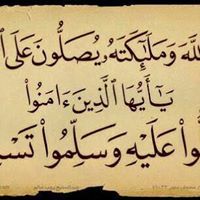 للَّهَ وَمَلَـٰٓئِكَتَهُۥ يُصَلُّونَ عَلَى ٱل
يَـٰٓأَيُّهَا ٱلَّذِينَ ءَامَنُوا۟
لُّوا۟ عَلَيْهِ وَسَلِّمُوا۟ تَسْ